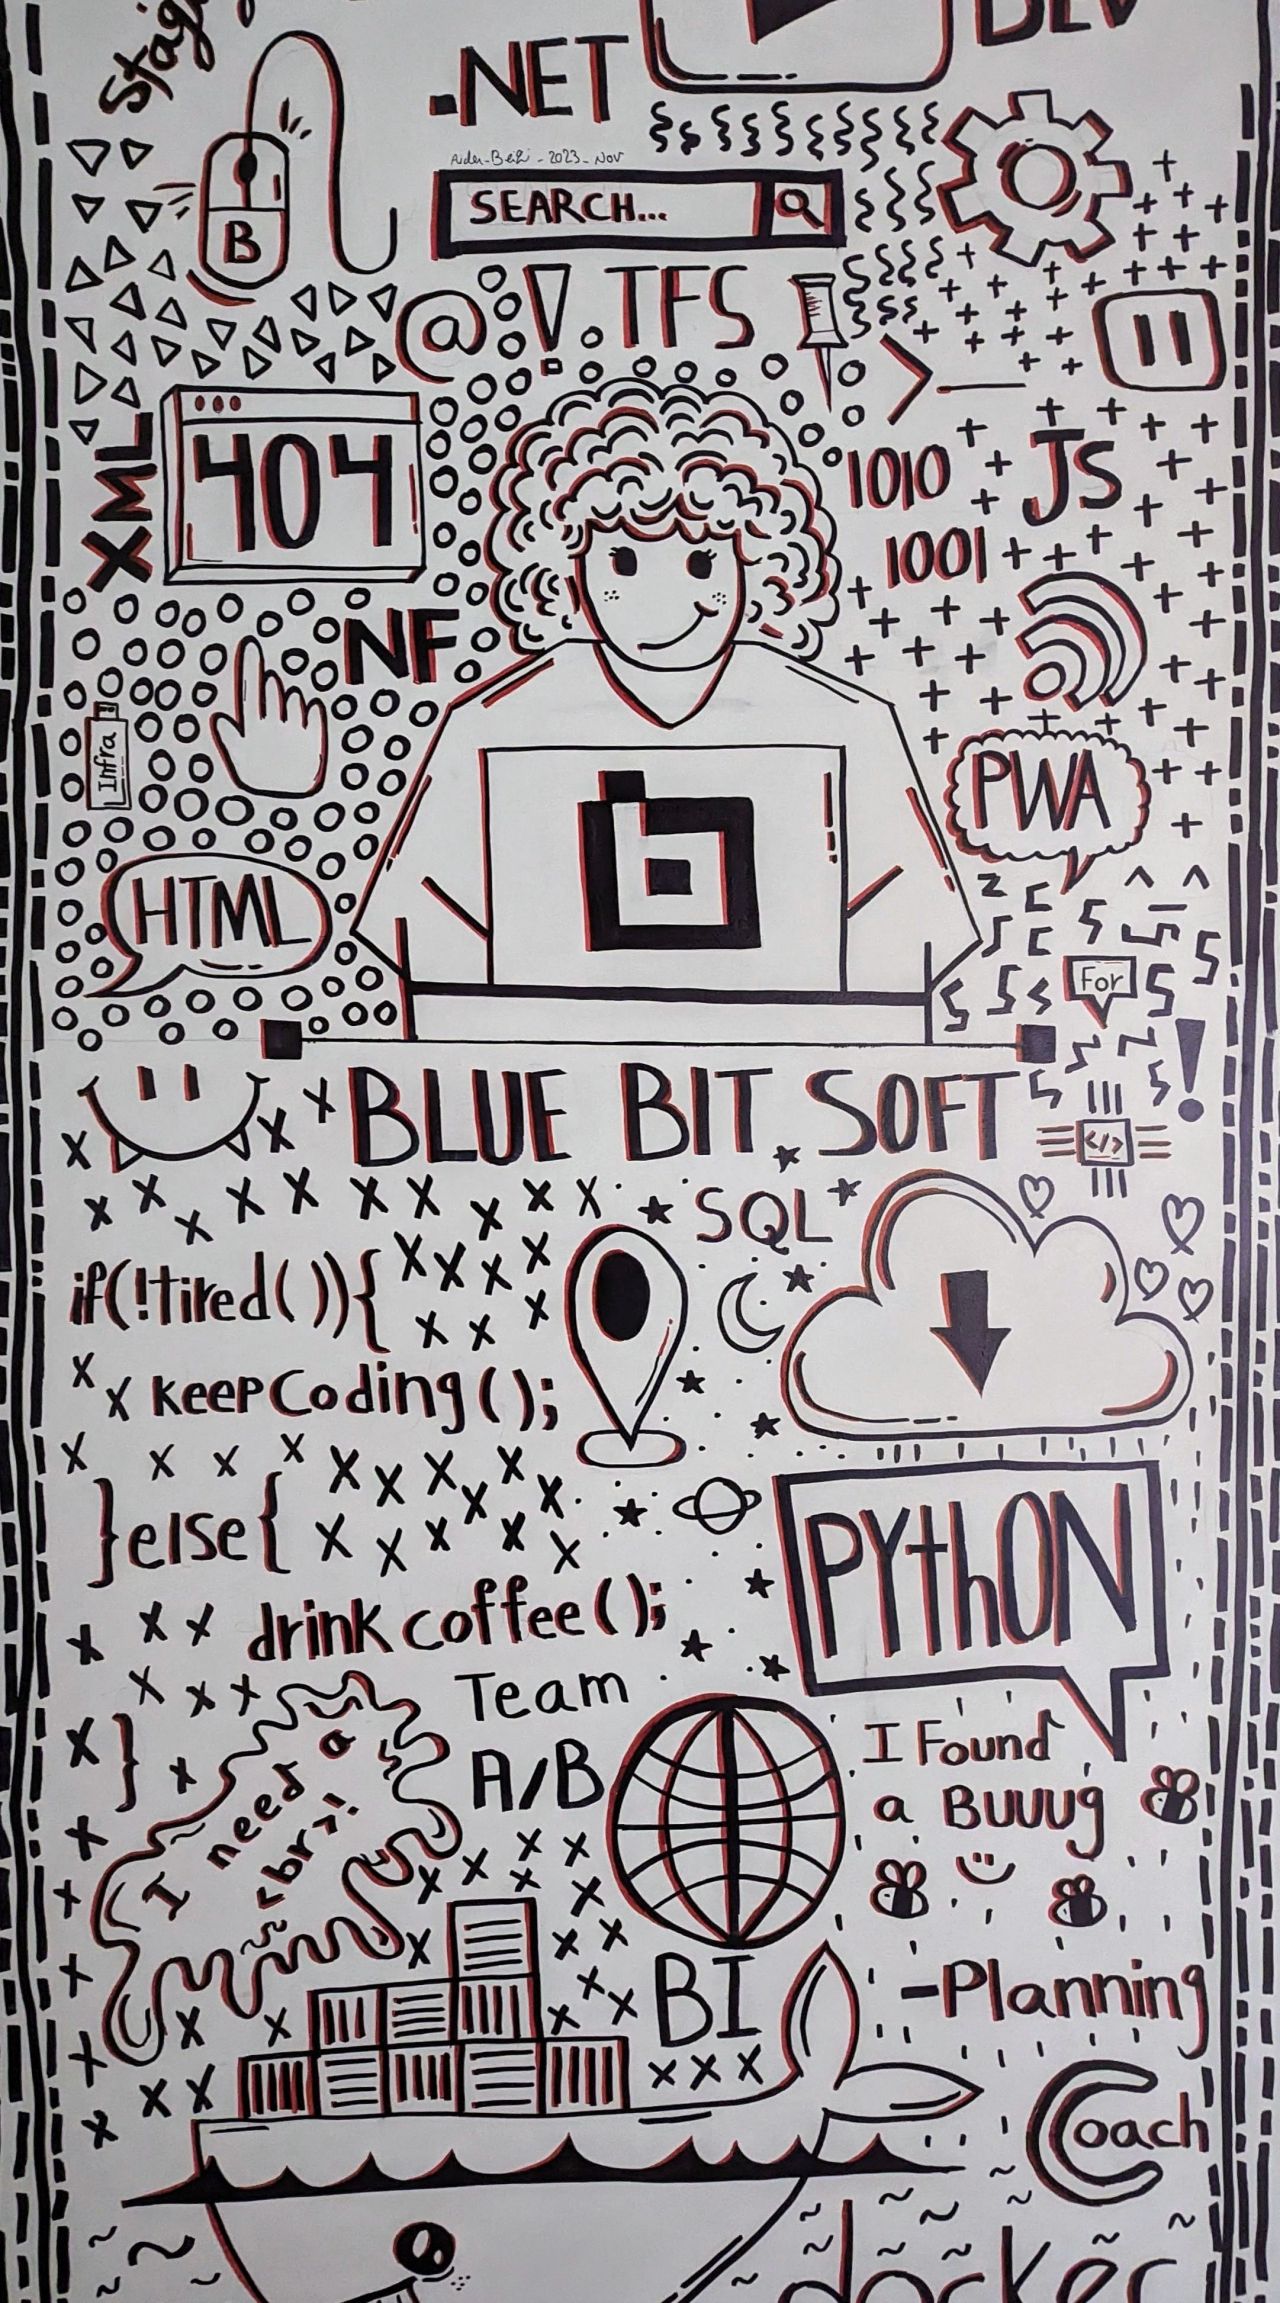 DEV
.NET
2023 - Nov
B
SEARCH...
@ ! . TFS
>_
XML
404
1010
JS
1001
NF
Infra
PWA
b
HTML
For
!
BLUE BIT SOFT
</>
SQL
if(!tired()){
keepCoding();
}else{
PYthON
drink coffee();
Team
}
A/B
I Found
a BUUUg
I need a
<br>!
BI
-Planning
Coach
docker